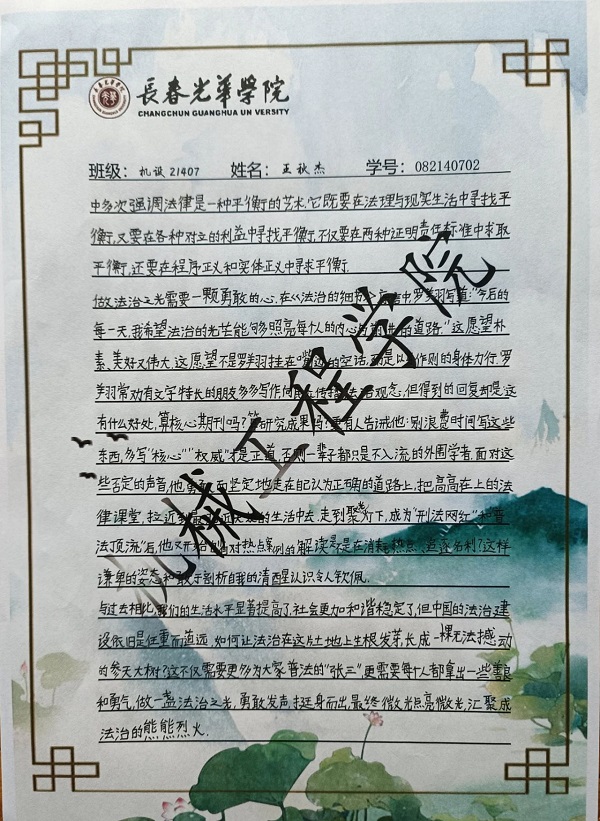 長春光華學院
CHANGCHUN GUANGHUA UN VERSITY
班级：机设21407 姓名：王秋杰 学号：082140702
中多次强调法律是一种平衡的艺术.它既要在法理与现实生活中寻找平
衡,又要在各种对立的利益中寻找平衡.不仅要在两种证明责任标准中求取
平衡,还要在程序正义和实体正义中寻求平衡.
做法治之光需要一颗勇敢的心.在《法治的细节》言中罗翔写道:"今后的
每一天,我希望法治的光芒能够照亮每个人的内心与前进的道路."这愿望朴
素、美好又伟大.这愿望不是罗翔挂在嘴边的空话,而是以作则的身体力行.罗
翔常劝有文学特长的朋友多多写作向传播法治观念,但得到的回复却是:这
有什么好处,算核心期刊吗?算研究成果吗?更有人告诫他:别浪费时间写这些
东西,多写"核心""权威"才是正道,否则一辈子都只是不入流的外围学者.面对这
些否定的声音,他勇而坚定地走在自己认为正确的道路上,把高高在上的法
律课堂,拉近到最的生活中去.走到聚光灯下,成为"刑法网红""普
法顶流"后,他又开始自对热点案例的解读是不是在消耗热点、追逐名利?这样
谦卑的姿态和敢于剖析自我的清醒认识令人钦佩.
与过去相比,我们的生活水平显著提高了,社会更加和谐稳定了,但中国的法治建
设依旧是任重而道远.如何让法治在这片土地上生根发芽,长成一棵无法撼动
的参天大树?这不仅需要更多为大家普法的"张三",更需要每个人都拿出一些善良
和勇气,做一盏法治之光,勇敢发声,挺身而出,最终微光点亮微光,汇聚成
法治的熊熊烈火.
机械工程学院